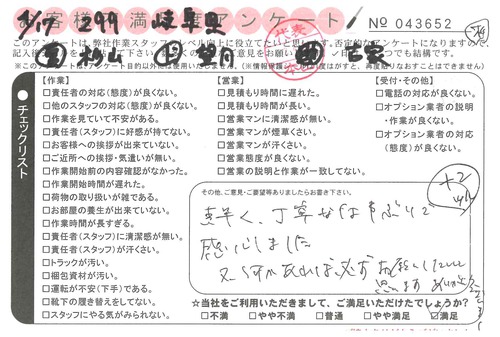 お客様満足度アンケート
No 043652
4/17 299 岐阜県
このアンケートは、弊社作業スタッフのレベル向上に役立てたいと思います。否定的なアンケートになりますので、
【作業】
□責任者の対応(態度)が良くない。
□他のスタッフの対応(態度)が良くない。
□作業を見ていて不安がある。
□責任者(スタッフ)に好感が持てない。
□お客様への挨拶が出来ていない。
□ご近所への挨拶・気遣いが無い。
□作業開始前の内容確認がなかった。
□作業開始時間が遅れた。
□荷物の取り扱いが雑である。
□お部屋の養生が出来ていない。
□作業時間が長すぎる。
□責任者(スタッフ)に清潔感が無い。
□責任者(スタッフ)が汗くさい。
□トラックが汚い。
□梱包資材が汚い。
□運転が不安(下手)である。
□靴下の履き替えをしてない。
□スタッフにやる気がみられない。
【営業】
□見積もり時間に遅れた。
□見積もり時間が長い。
□営業マンに清潔感が無い。
□営業マンが煙草くさい。
□営業マンが汗くさい。
□営業態度が良くない。
□営業の説明と作業が一致してない。
【受付・その他】
□電話の対応が良くない。
□オプション業者の説明
・作業が良くない。
□オプション業者の対応
(態度)が良くない。
チェックリスト
その他、ご意見・ご要望等ありましたらお書き下さい。
素早く、丁寧な仕事ぶりで
感心しました
又、何かあれば必ずお願いしたいと
思います
☆当社をご利用いただきまして、ご満足いただけたでしょうか?
□不満 □やや不満 □普通 □やや満足 □満足